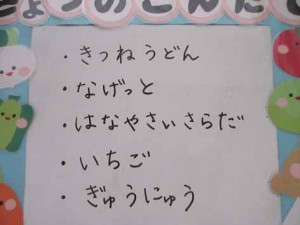 きょうのこんだて
・きつねうどん
・なげっと
・はなやさいさらだ
・いちご
・ぎゅうにゅう